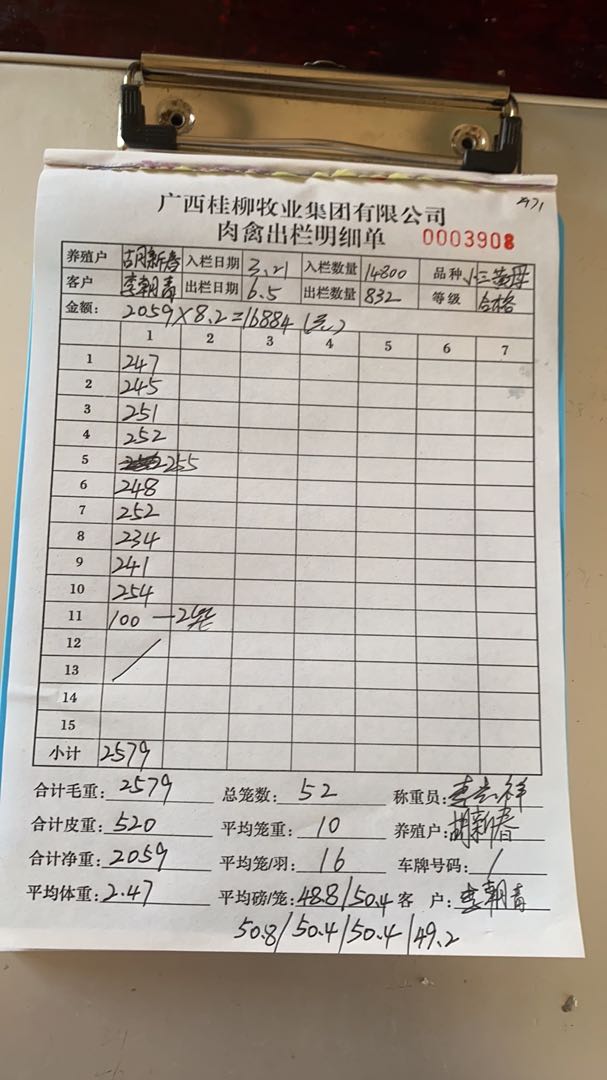 2471
广西桂柳牧业集团有限公司
肉禽出栏明细单 0003908
养殖户 胡新春 入栏日期 3.21 入栏数量 14800 品种 小三黄母
客户 李朝青 出栏日期 6.5 出栏数量 832 等级 合格
金额: 2059×8.2=16884(元)
1 2 3 4 5 6 7
1 247
2 245
3 251
4 252
5 255
6 248
7 252
8 234
9 241
10 254
11 100 — 2笼
12
13
14
15
小计 2579
合计毛重: 2579 总笼数: 52 称重员: 李志祥
合计皮重: 520 平均笼重: 10 养殖户: 胡新春
合计净重: 2059 平均笼/羽: 16 车牌号码: /
平均体重: 2.47 平均磅/笼: 48.8/50.4 客 户: 李朝青
50.8/50.4/50.4/49.2